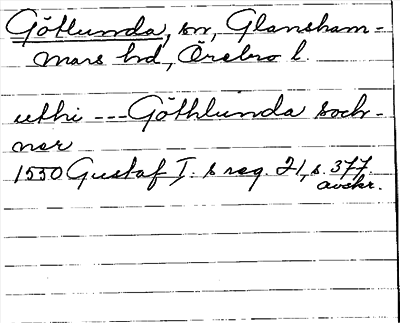 Götlunda, sn, Glansham-
mars hd, Örebro l.
uthi --- Göthlunda soch-
ner
1550 Gustaf I:s reg. 21, s. 377.
avskr.